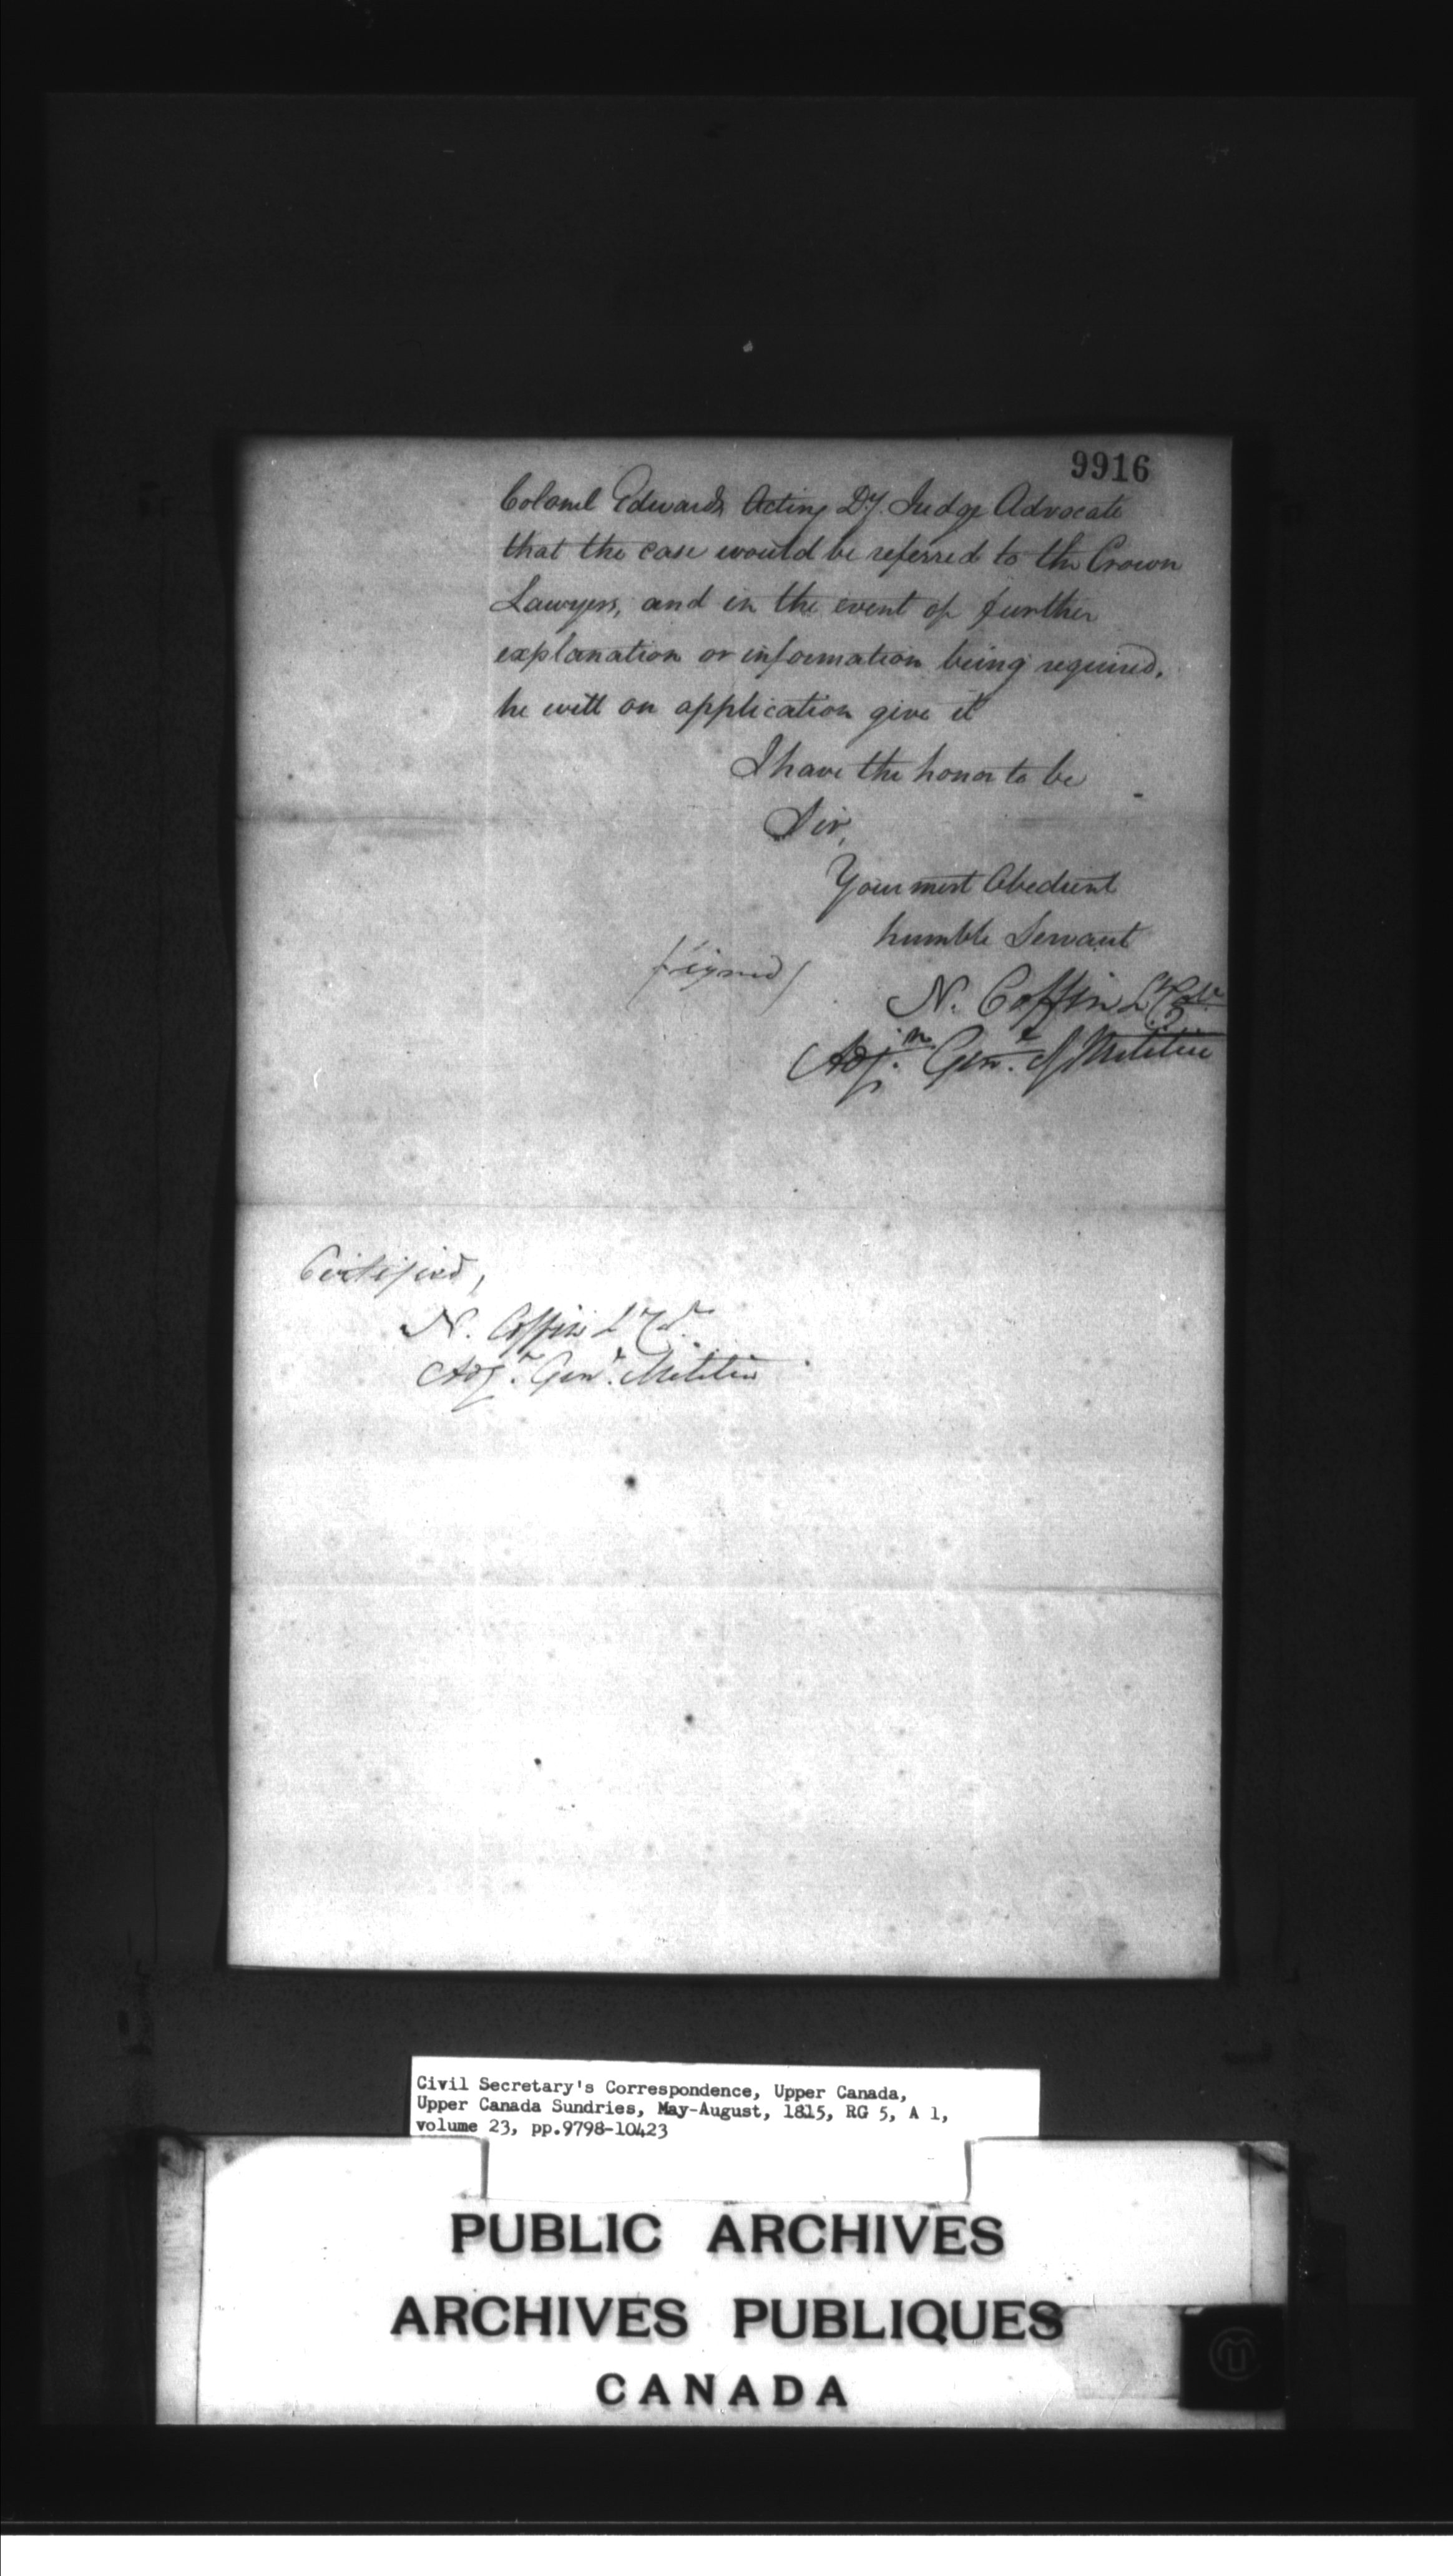 9916
Colonel Edwards Acting Dy. Judge Advocate
that the case would be referred to the Crown
Lawyers, and in the event of further
explanation or information being required,
he will on application give it
I have the honor to be
Sir,
Your most Obedient
humble Servant
(signed)
N. Coffin Lt Col
Adjn. Genl. of Militia
Certified,
N. Coffin Lt Col.
Adjn. Genl. Militia
Civil Secretary's Correspondence, Upper Canada,
Upper Canada Sundries, May-August, 1815, RG 5, A 1,
volume 23, pp.9798-10423
PUBLIC ARCHIVES
ARCHIVES PUBLIQUES
CANADA